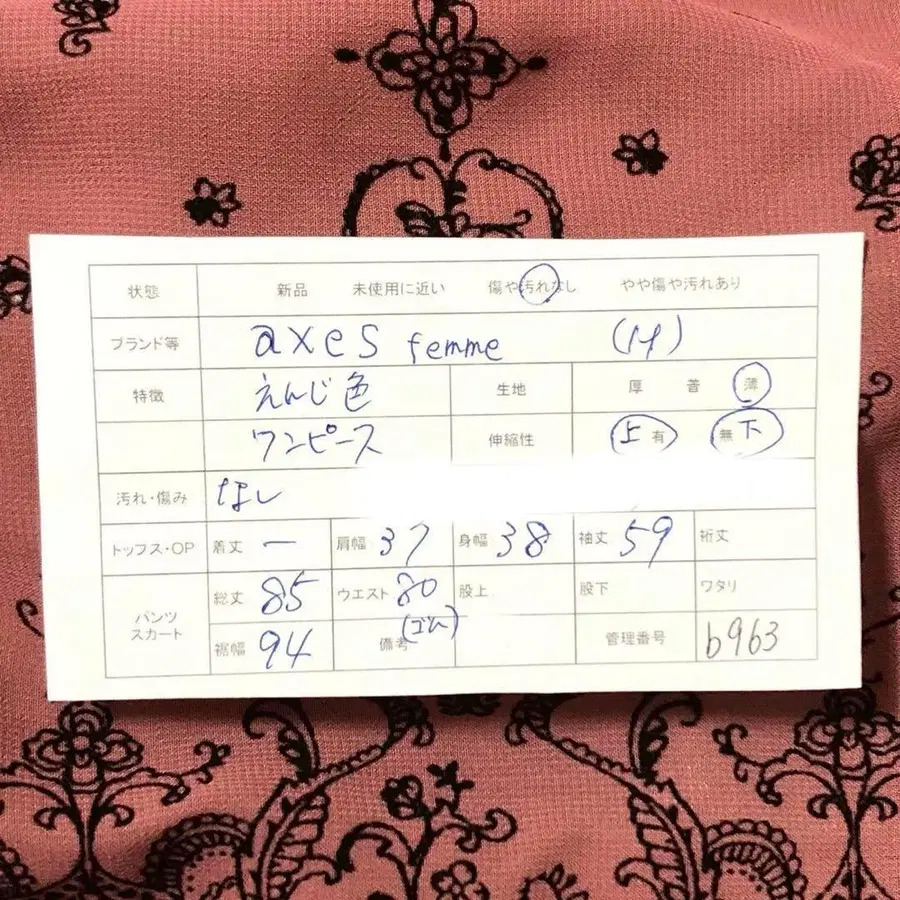 状態 新品 未使用に近い 傷や汚れなし やや傷や汚れあり
ブランド等 axes femme (M)
特徴 えんじ色 生地 厚 普 薄
ワンピース 伸縮性 上 有 無 下
汚れ・傷み なし
トップス・OP 着丈 ー 肩幅 37 身幅 38 袖丈 59 裄丈
パンツ スカート 総丈 85 ウエスト 80 (ゴム) 股上 股下 ワタリ
裾幅 94 備考 管理番号 b963